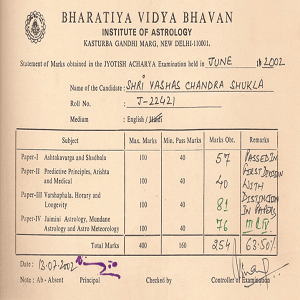 BHARATIYA VIDYA BHAVAN
INSTITUTE OF ASTROLOGY
KASTURBA GANDHI MARG, NEW DELHI-110001.
Statement of Marks obtained in the JYOTISH ACHARYA Examination held in JUNE 2002
Name of the Candidate: SHRI YASHAS CHANDRA SHUKLA
Roll No. : J-22421
Medium : English / Hindi
Subject Max. Marks Min. Pass Marks Marks Obt. Remarks
Paper-I Ashtakavarga and Shadbala 100 40 57 PASSED IN
Paper-II Predictive Principles, Arishta and Medical 100 40 40 FIRST DIVISION WITH
Paper-III Varshaphala, Horary and Longevity 100 40 81 DISTINCTION
Paper-IV Jaimini Astrology, Mundane Astrology and Astro Meteorology 100 40 76 IN PAPERS III & IV
Total Marks 400 160 254 63.50%
Date : 13-07-2002
Note : Ab - Absent Principal Checked by Controller of Examination